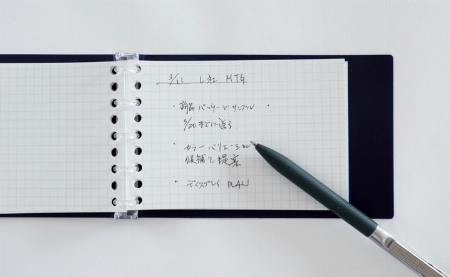 3/11 し社 MTG
・新商品パッケージサンプル
3/20までに送る
・カラーバリエーション
候補て提案
・ディスプレイ PLAN